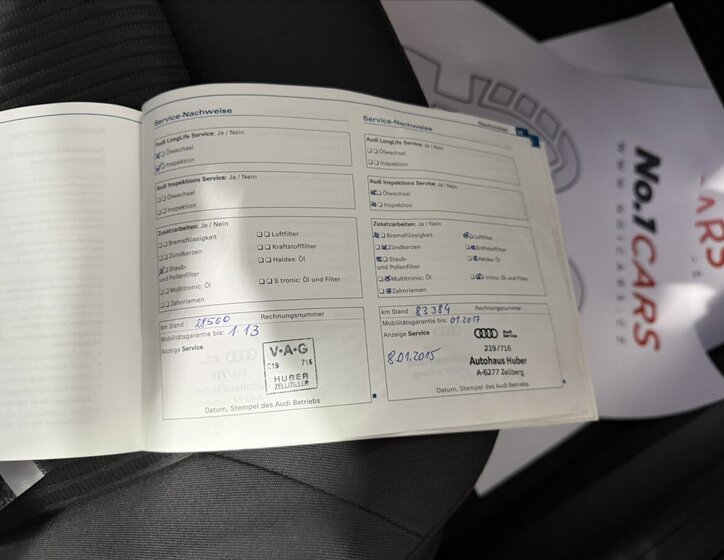 Service-Nachweise
Audi LongLife Service: Ja / Nein
Ölwechsel
Inspektion
Audi Inspektions Service: Ja / Nein
Ölwechsel
Inspektion
Zusatzarbeiten: Ja / Nein
Bremsflüssigkeit
Luftfilter
Zündkerzen
Kraftstofffilter
Staub-
und Pollenfilter
Haldex: Öl
Multitronic: Öl
S tronic: Öl und Filter
Zahnriemen
km Stand 28500 Rechnungsnummer
Mobilitätsgarantie bis: 1.13
Anzeige Service
V·A·G
219 716
HUBER
ZELL/ZILLER
Datum, Stempel des Audi Betriebs
Service-Nachweise
Nachweise
Audi LongLife Service: Ja / Nein
Ölwechsel
Inspektion
Audi Inspektions Service: Ja / Nein
Ölwechsel
Inspektion
Zusatzarbeiten: Ja / Nein
Bremsflüssigkeit
Luftfilter
Zündkerzen
Kraftstofffilter
Staub-
und Pollenfilter
Haldex: Öl
Multitronic: Öl
S tronic: Öl und Filter
Zahnriemen
km Stand 83384 Rechnungsnummer
Mobilitätsgarantie bis: 01.2017
Anzeige Service
Audi
Service
8.01.2015
219/716
Autohaus Huber
A-6277 Zellberg
Datum, Stempel des Audi Betriebs
No.1CARS
WWW.NO1CARS.CZ
ARS